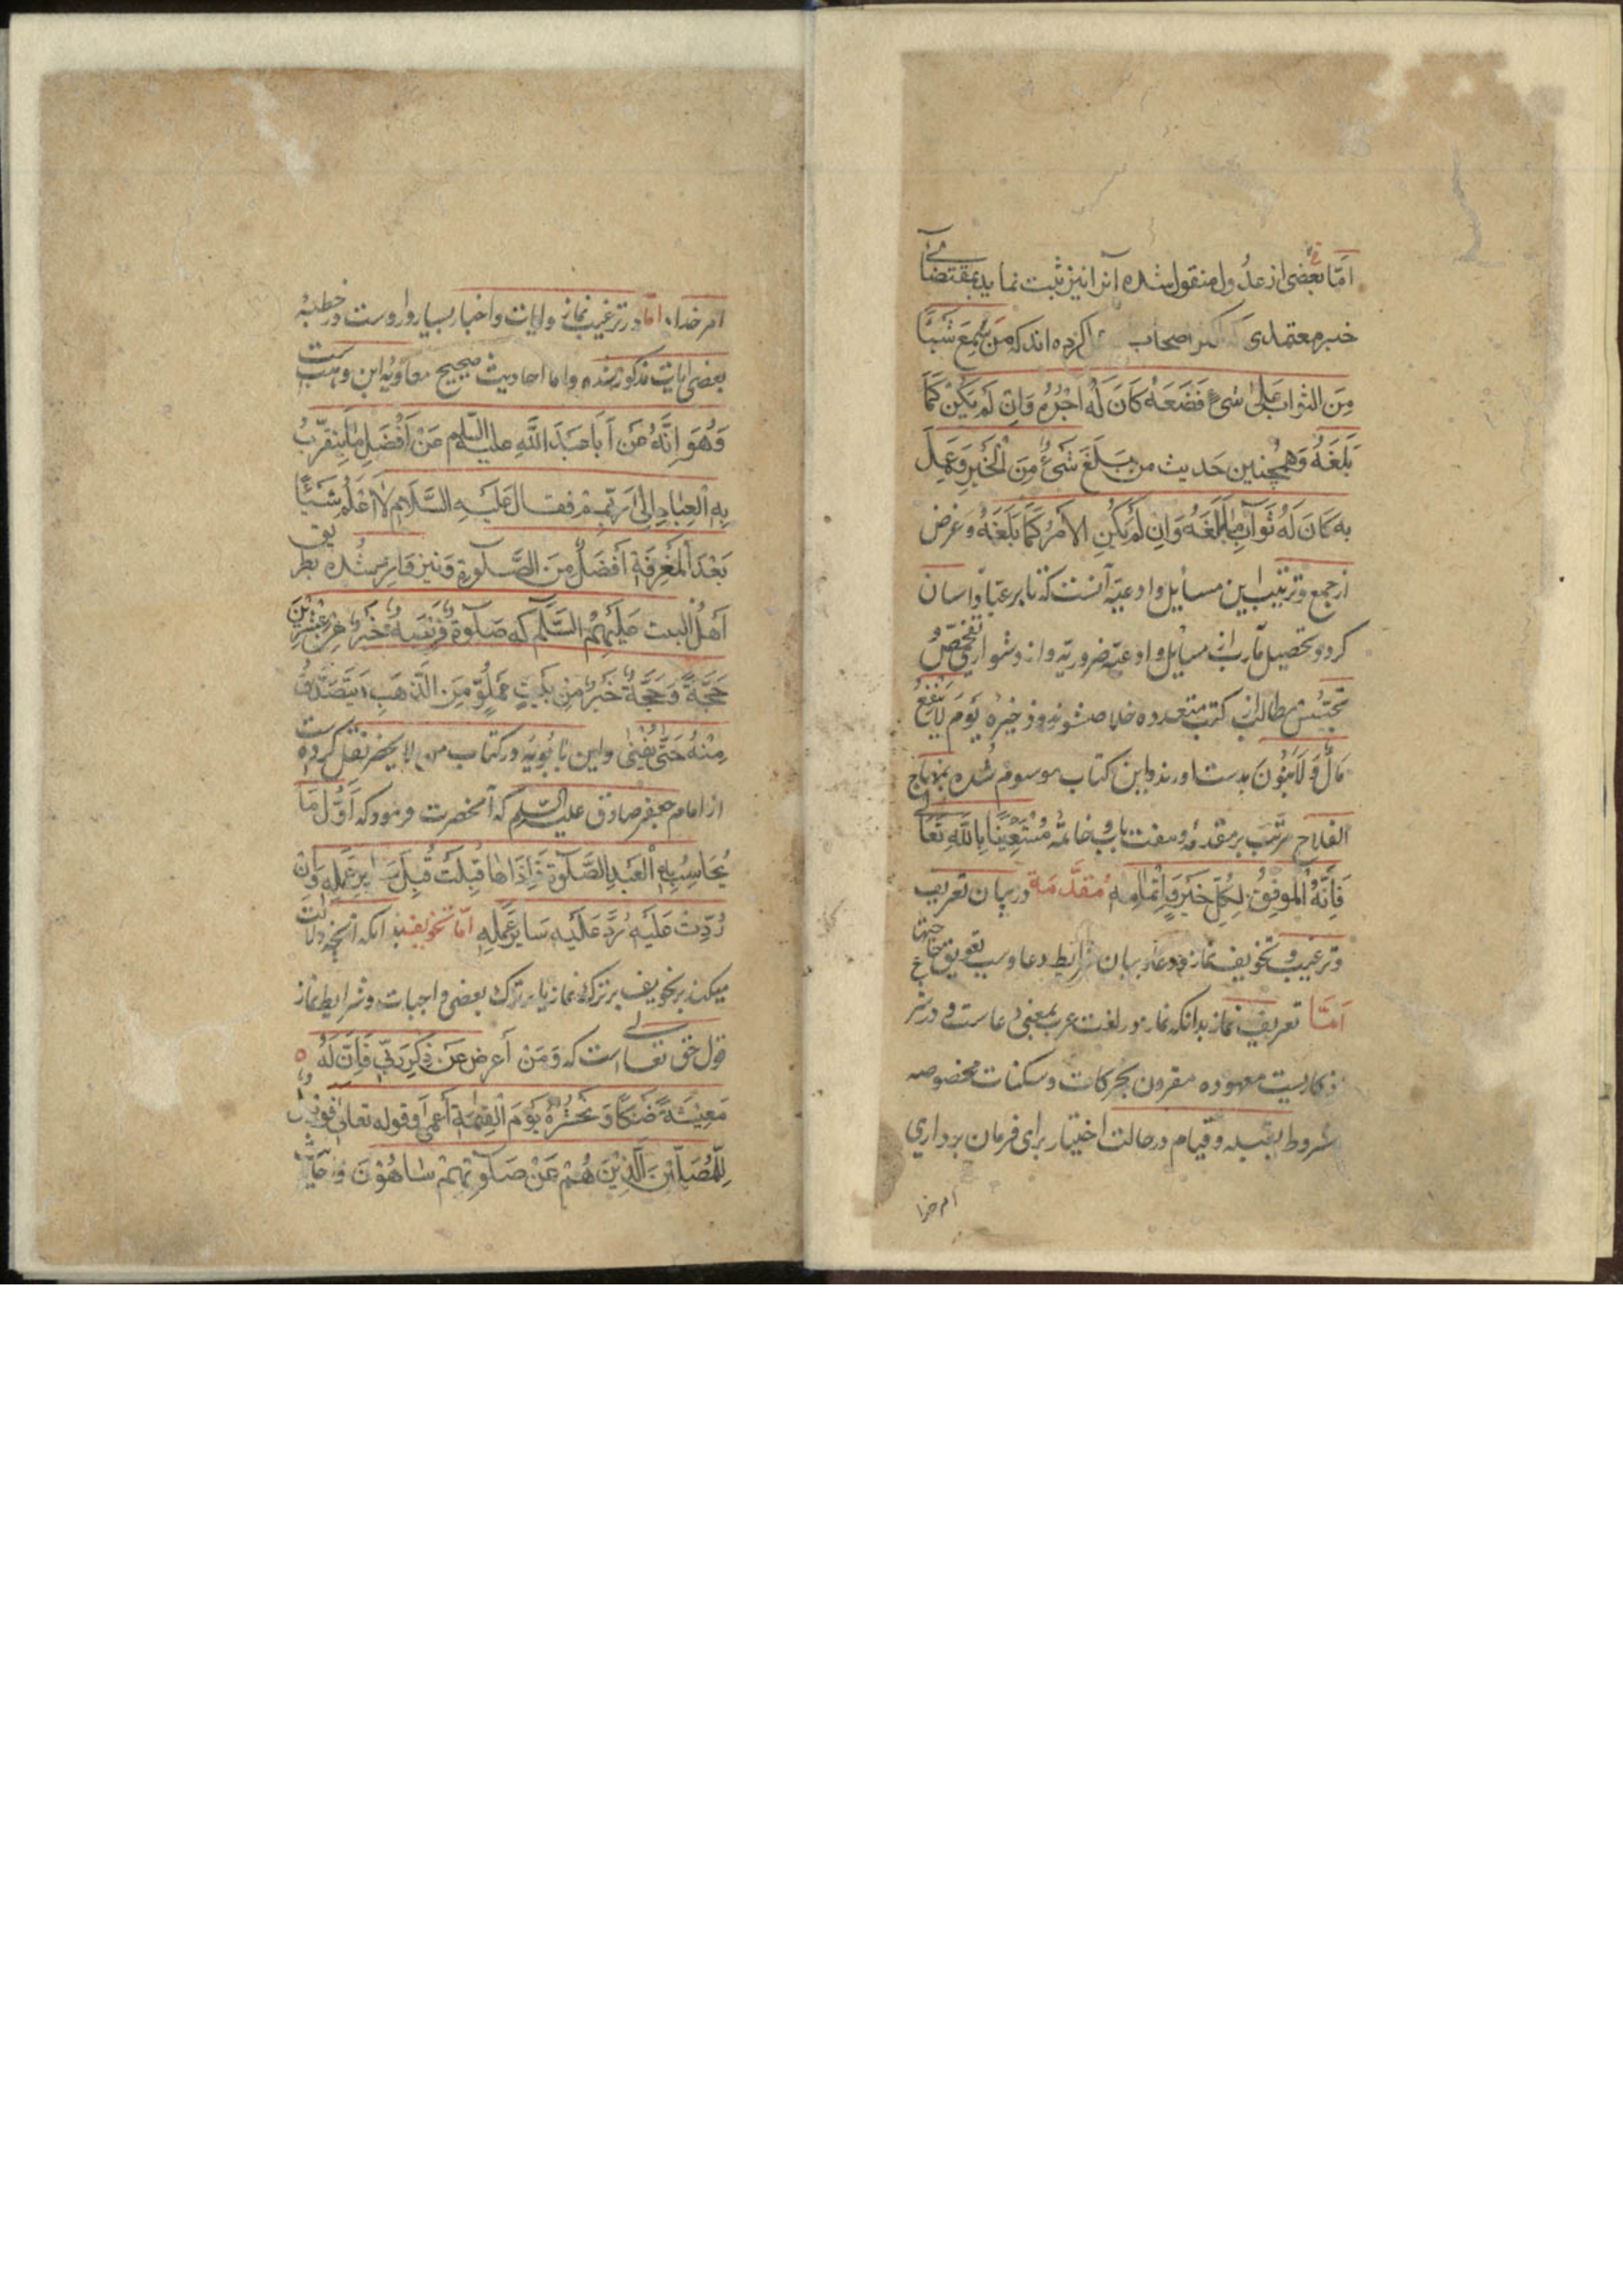 اما بعضی از عدول منقول شده آنرا نیز ثبت نماید بمقتضای
خبر معتمدی که اکثر اصحاب کرده‌اند که مَن سَمِعَ شَیئًا
مِنَ الثواب عَلیٰ شیءٍ فَصَنَعَهُ کَانَ لَهُ اَجْرُهُ وَاِن لَم یَکُنْ کَمَا
بَلَغَهُ وَهمچنین حَدیث من بَلَغَ شَیءٌ مِنَ الْخَیرِ وَعَمِلَ
بِه کَانَ لَهُ ثَوَابُ مٰابَلَغَهُ وَاِن لَم یَکُنِ الاَمرُ کَمَا بَلَغَهُ وَغرض
از جمع و ترتیب این مسایل و ادعیّه آنست که تا بر عباد آسان
کردد و تحصیل مآرب از مسایل و ادعیّه ضروریّه و از دشواری تفحّص
تجسّس مطالب از کتب متعدده خلاص شوند و ذخیره یَومَ لایَنفَعُ
مَالٌ وَلاٰبَنُونَ بدست اورند و این کتاب موسوم شده بمنهاج
الفلاح مرتّب بر مقدمه و هفت باب و خاتمه مُستَعِینًا بِاللّهِ تَعَالی
فَاِنَّهُ المُوفِقُ لِکُلِّ خَیرٍ وَاِتمٰامِهِ مُقَدَّمَة در بیان تعریف
و ترغیب و تخویف نماز و دعا و بیان شرایط دعا و سبب تعویق حاجتها
اَمَّا تعریف نماز بدانکه نماز در لغت عرب بمعنی دعاست و در شر
ع کاریست معهوده مقرون بحرکات و سکنات مخصوصه
مشروط بقبله و قیام در حالت اختیار برای فرمان برداری
امر خدا
امر خدا، امّا در ترغیب نماز و ایات و اخبار بسیار وارد است در خطبهٔ
بعضی ایات مذکور شده و اما احادیث صحیح معاویه ابن وهب است
وَهُوَ اِنَّهُ عَن اَبَا عَبدَ اللّهِ علیه السلام عَنْ اَفْضَلِ مٰایتقرّبُ
بِهِ الْعِبٰادِ اِلیٰ رَبِّهِم فقال عَلَیهِ السَّلاٰم لاٰ اَعْلَمُ شَیئًا
بَعْدَ المَعْرِفَةِ اَفضَلُ مِنَ الصَّلٰوةِ وَنیز وارد شده بطریق
اَهلُ البیت عَلَیهِمُ السَّلٰم که صَلٰوةٌ فَرِیضَةٌ خَیرٌ مِن عِشرِینَ
حَجَّةً وَحَجَّةٌ خَیرٌ مِن بَیتٍ مَملُوٍّ مِنَ الذَّهَبِ یَتَصَدَّقُ
مِنْهُ حَتَّی یَفْنیٰ و ابن بابُویَه در کتاب من لا یحضر نقل کرده است
از امام جعفر صادق علیه السلام که آنحضرت فرمود که اَوَّلُ مَا
یُحَاسَبُ بِهِ الْعَبدُ الصَّلٰوة فَاِذَا قُبِلَتْ قُبِلَ سَایِرُ عَمَلِهِ وَاِن
رُدِّتْ عَلَیهِ رُدَّ عَلَیهِ سَایِرُ عَمَلِهِ امّا تخویف بدانکه آنچه دلالت
میکند بر تخویف بر ترک نماز یا بر ترک بعضی واجبات و شرایط نماز
قول حق تعالی است که وَمَنْ أعرض عَن ذِکرِ رَبّی فَاِنَّ لَهُ
مَعِیشَةً ضَنکًا وَ نَحْشُرُهُ یَومَ القِیٰمَةِ اَعمیٰ و قوله تعالی فَوَیلٌ
لِلْمُصَلِّینَ الَّذِینَ هُم عَنْ صَلٰوتِهِمْ سٰاهُوْنَ وَ